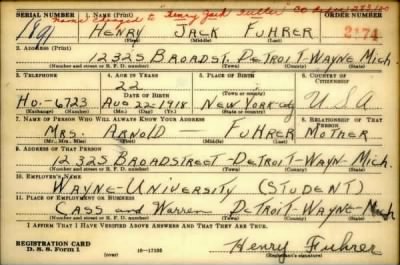 Name Changed to "Henry Jack Fuller"
SERIAL NUMBER 1. NAME (Print) ORDER NUMBER
1891 HENRY JACK FUHRER 2174
(First) (Middle) (Last)
2. ADDRESS (Print)
12325 BROADST. DETROIT-WAYNE MICH
(Number and street or R. F. D. number) (Town) (County) (State)
3. TELEPHONE 4. AGE IN YEARS 5. PLACE OF BIRTH 6. COUNTRY OF CITIZENSHIP
22
(Town or county)
HO.-6723 AUG 22-1918 NEW YORK City U.S.A
(Exchange) (Number) (Mo.) (Day) (Yr.) (State or country)
7. NAME OF PERSON WHO WILL ALWAYS KNOW YOUR ADDRESS 8. RELATIONSHIP OF THAT PERSON
MRS. ARNOLD — FUHRER MOTHER
(Mr., Mrs., Miss) (First) (Middle) (Last)
9. ADDRESS OF THAT PERSON
12325 BROADSTREET-DETROIT-WAYN-MICH.
(Number and street or R. F. D. number) (Town) (County) (State)
10. EMPLOYER'S NAME
WAYNE-UNIVERSITY (STUDENT)
11. PLACE OF EMPLOYMENT OR BUSINESS
CASS and Warren DETROIT-WAYNE-Mich
(Number and street or R. F. D. number) (Town) (County) (State)
I AFFIRM THAT I HAVE VERIFIED ABOVE ANSWERS AND THAT THEY ARE TRUE.
REGISTRATION CARD
D. S. S. Form 1 Henry Fuhrer
(Registrant's signature)